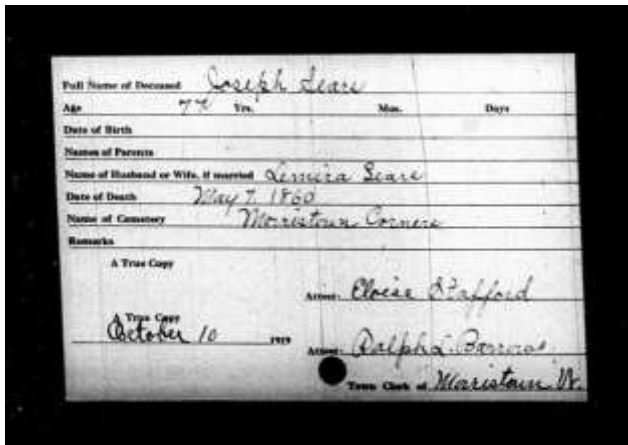 Full Name of Deceased Joseph Sears
Age 77 Yrs. Mos. Days
Date of Birth
Names of Parents
Name of Husband or Wife, if married Lemira Sears
Date of Death May 7, 1860
Name of Cemetery Morristown Corners
Remarks
A True Copy
Attest: Eloise Stafford
A True Copy
October 10 1919
Attest: Ralph L. Barrows
Town Clerk of Morristown Vt.